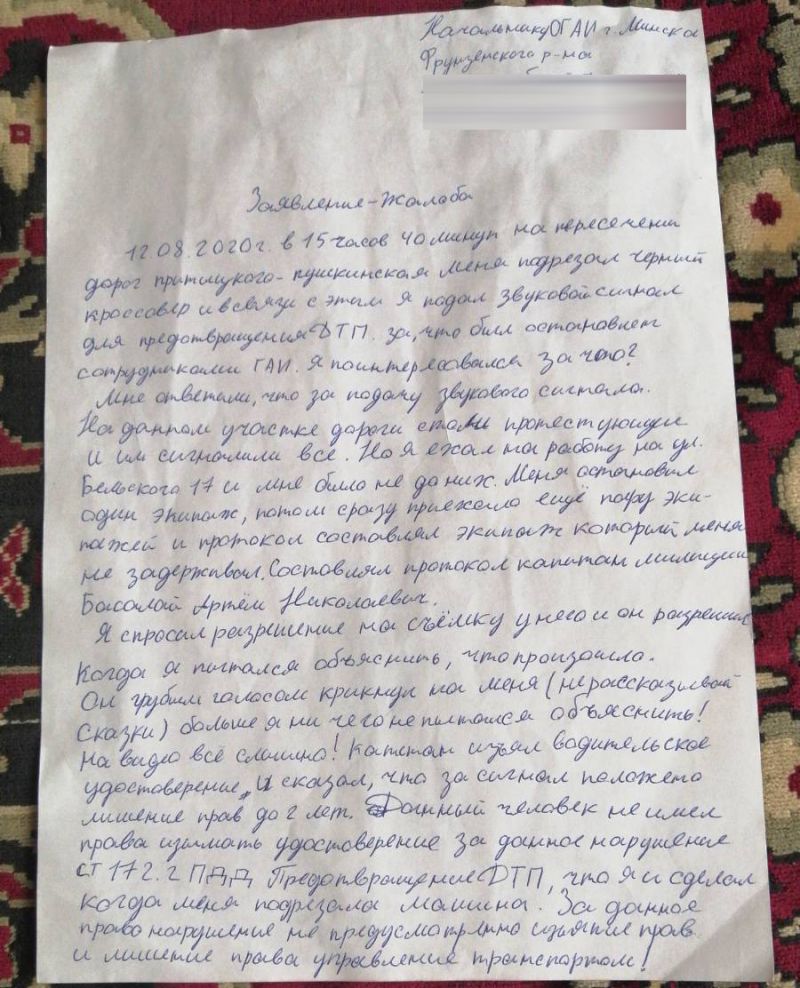 Начальнику ОГАИ г. Минска
Фрунзенского р-на
Заявление-Жалоба
12.08.2020г. в 15 часов 40 минут на пересечении
дорог притыцкого-пушкинская меня подрезал черный
кроссовер и в связи с этим я подал звуковой сигнал
для предотвращения ДТП. за, что был остановлен
сотрудниками ГАИ. Я поинтересовался за что?
Мне ответили, что за подачу звукового сигнала.
На данном участке дороги стояли протестующии
и им сигналили все. Но я ехал на работу на ул.
Бельского 17 и мне было не до них. Меня остановил
один экипаж, потом сразу приехало ещё пару эки-
пажей и протокол составлял экипаж который меня
не задерживал. Составлял протокол капитан милиции
Басалай Артём Николаевич.
Я спросил разрешение на съёмку у него и он разрешил
Когда я пытался объяснить, что произошло.
Он грубым голосом крикнул на меня (не рассказывай
сказки) больше я ни чего не пытался объяснить!
На видео всё слышно! Капитан изъял водительское
удостоверение, и сказал, что за сигнал положено
лишение прав до 2 лет. Данный человек не имел
права изымать удостоверение за данное нарушение
ст 172.2 ПДД Предотвращение ДТП, что я и сделал
когда меня подрезала машина. За данное
право нарушение не предусмотрено изъятие прав
и лишение права управление транспортом!